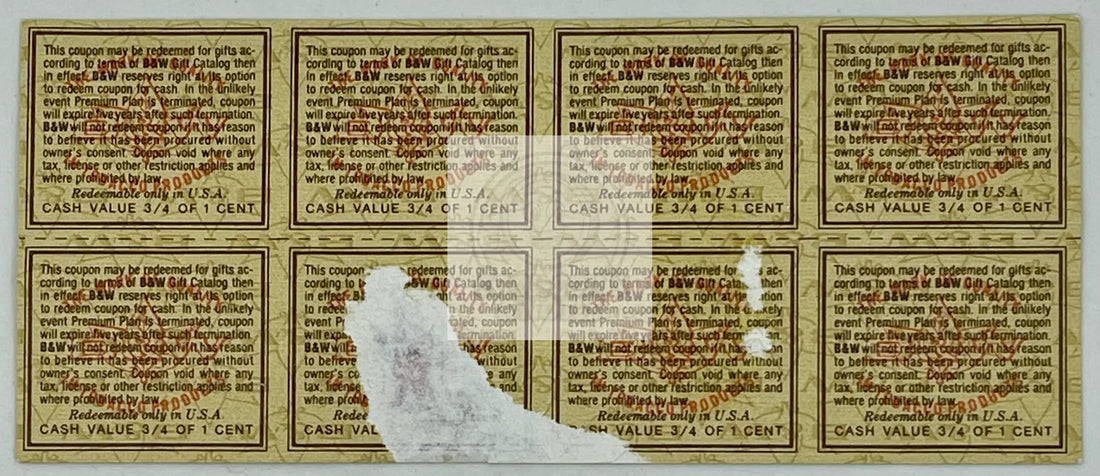 This coupon may be redeemed for gifts ac-
cording to terms of B&W Gift Catalog then
in effect. B&W reserves right at its option
to redeem coupon for cash. In the unlikely
event Premium Plan is terminated, coupon
will expire five years after such termination.
B&W will not redeem coupon if it has reason
to believe it has been procured without
owner's consent. Coupon void where any
tax, license or other restriction applies and
where prohibited by law.
Redeemable only in U.S.A.
CASH VALUE 3/4 OF 1 CENT
This coupon may be redeemed for gifts ac-
cording to terms of B&W Gift Catalog then
in effect. B&W reserves right at its option
to redeem coupon for cash. In the unlikely
event Premium Plan is terminated, coupon
will expire five years after such termination.
B&W will not redeem coupon if it has reason
to believe it has been procured without
owner's consent. Coupon void where any
tax, license or other restriction applies and
where prohibited by law.
Redeemable only in U.S.A.
CASH VALUE 3/4 OF 1 CENT
This coupon may be redeemed for gifts ac-
cording to terms of B&W Gift Catalog then
in effect. B&W reserves right at its option
to redeem coupon for cash. In the unlikely
event Premium Plan is terminated, coupon
will expire five years after such termination.
B&W will not redeem coupon if it has reason
to believe it has been procured without
owner's consent. Coupon void where any
tax, license or other restriction applies and
where prohibited by law.
Redeemable only in U.S.A.
CASH VALUE 3/4 OF 1 CENT
This coupon may be redeemed for gifts ac-
cording to terms of B&W Gift Catalog then
in effect. B&W reserves right at its option
to redeem coupon for cash. In the unlikely
event Premium Plan is terminated, coupon
will expire five years after such termination.
B&W will not redeem coupon if it has reason
to believe it has been procured without
owner's consent. Coupon void where any
tax, license or other restriction applies and
where prohibited by law.
Redeemable only in U.S.A.
CASH VALUE 3/4 OF 1 CENT
This coupon may be redeemed for gifts ac-
cording to terms of B&W Gift Catalog then
in effect. B&W reserves right at its option
to redeem coupon for cash. In the unlikely
event Premium Plan is terminated, coupon
will expire five years after such termination.
B&W will not redeem coupon if it has reason
to believe it has been procured without
owner's consent. Coupon void where any
tax, license or other restriction applies and
where prohibited by law.
Redeemable only in U.S.A.
CASH VALUE 3/4 OF 1 CENT
This coupon redeemed for gifts ac-
cording to B&W Gift Catalog then
in effect. right at its option
to redeem In the unlikely
event terminated, coupon
will expire termination.
B&W will has reason
to believe without
owner's any
tax, and
where
CASH VALUE
This coupon may be redeemed for ac-
cording to terms of B&W Gift Catalog then
in effect. B&W reserves right at option
to redeem coupon for cash. In the unlikely
event Premium Plan is terminated, coupon
will expire five years after such termination.
B&W will not redeem coupon reason
to believe it has been procured without
owner's consent. Coupon void where any
tax, license or other restriction applies and
where prohibited by law.
Redeemable only in U.S.A.
CASH VALUE 3/4 OF 1 CENT
This coupon may be redeemed for gifts ac-
cording to terms of B&W Gift Catalog then
in effect. B&W reserves right at its option
to redeem coupon for cash. In the unlikely
event Premium Plan is terminated, coupon
will expire five years after such termination.
B&W will not redeem coupon if it has reason
to believe it has been procured without
owner's consent. Coupon void where any
tax, license or other restriction applies and
where prohibited by law.
Redeemable only in U.S.A.
CASH VALUE 3/4 OF 1 CENT